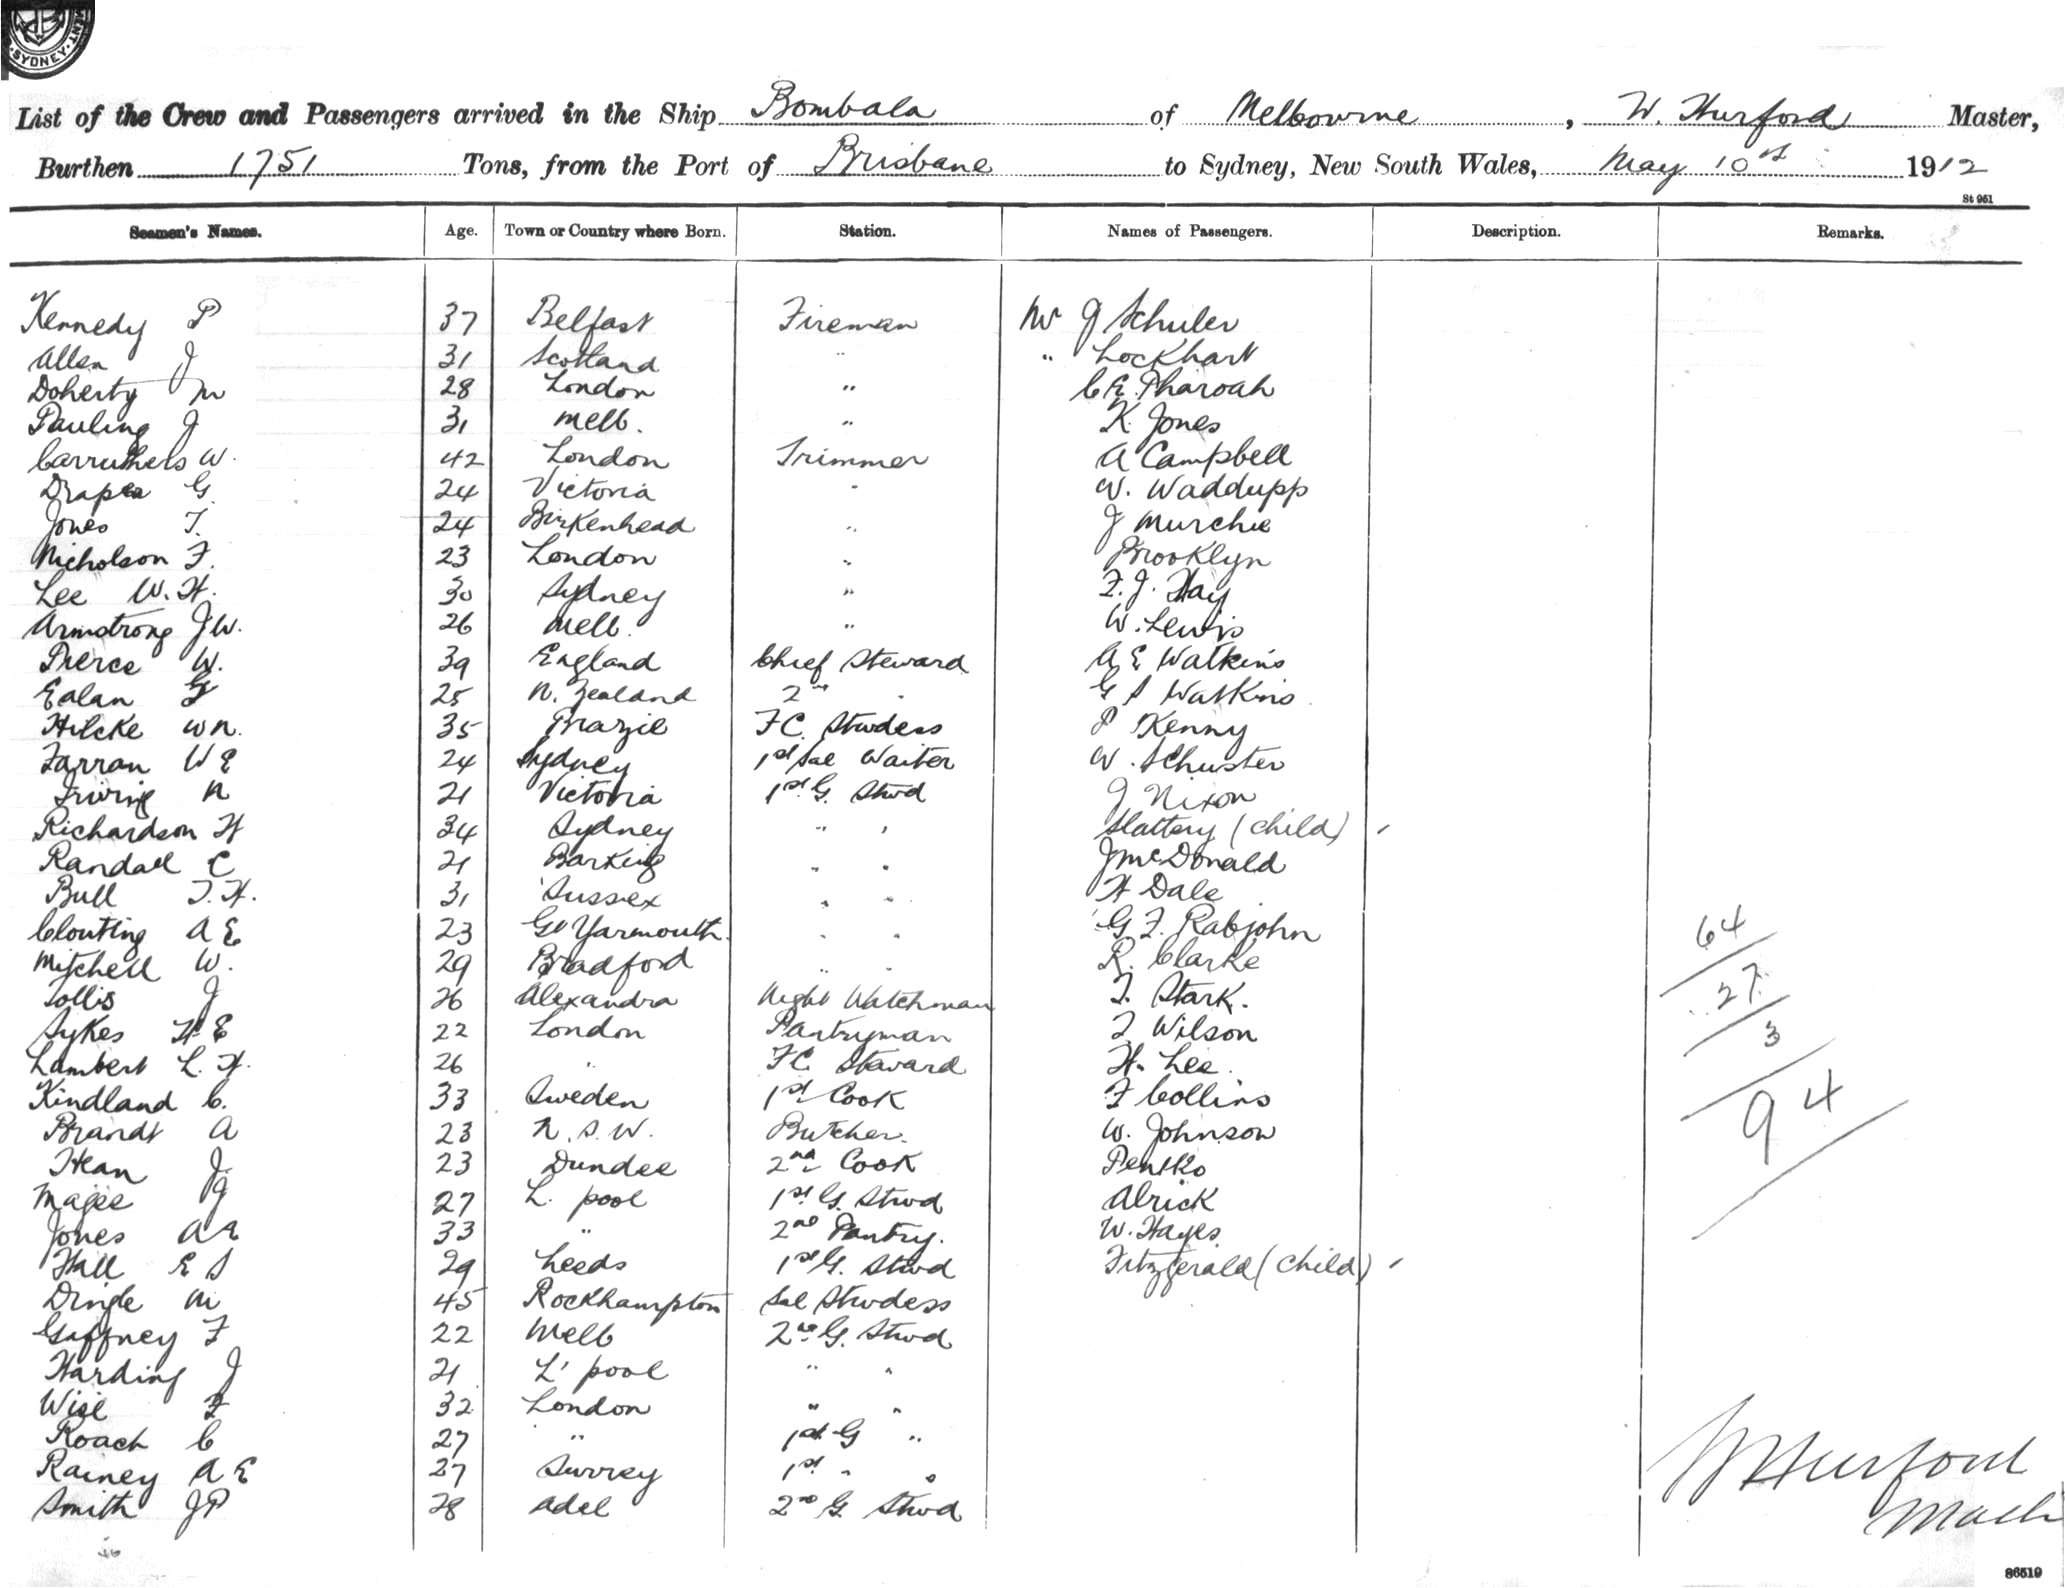 MENT. SYDNEY.
List of the Crew and Passengers arrived in the Ship Bombala of Melbourne, W. Hurford Master,
Burthen 1751 Tons, from the Port of Brisbane to Sydney, New South Wales, May 10th 1912
St 951
Seamen's Names. Age. Town or Country where Born. Station. Names of Passengers. Description. Remarks.
Kennedy P 37 Belfast Fireman Mr J Schuler
Allen J 31 Scotland " " Lockhart
Doherty M 28 London " C E. Pharoah
Pauling J 31 Melb. " K. Jones
Carruthers W. 42 London Trimmer A Campbell
Draper G. 24 Victoria " W. Waddupp
Jones T. 24 Birkenhead " J Murchie
Nicholson F. 23 London " Brooklyn
Lee W. H. 30 Sydney " F. J. Hay
Armstrong J W. 26 Melb. " W. Lewis
Pierce W. 39 England Chief Steward A E Watkins
Ealan 25 N. Zealand 2nd " G S Watkins
Hilcke W N. 35 F C. Stwdess P Kenny
Farran W E 24 Sydney 1st Sal Waiter W. Schuster
Irving N 21 Victoria 1st G. Stwd J Nixon
Richardson H 34 Sydney " " Slattery (child)
Randall C 21 Barking " " J McDonald
Bull T. H. 31 Sussex " " H Dale
Clouting A E 23 Gt Yarmouth " " G F. Rabjohn
Mitchell W. 29 Bradford " " R. Clarke
Tollis J 26 Alexandra Night Watchman T. Stark.
Sykes H E 22 London Pantryman T Wilson
Lambert L. H. 26 " F C. Steward H. Lee.
Kindland C. 33 Sweden 1st Cook F Collins
Brandt A 23 N. S. W. Butcher. W. Johnson
Hean J. 23 Dundee 2nd Cook
Magee J 27 L. pool 1st G. Stwd Alrick
Jones A 33 " 2nd Pantry. W. Hayes
Hall E S 29 Leeds 1st G. Stwd Fitzgerald (child)
Dingle M 45 Rockhampton Sal Stwdess
Gaffney F 22 Melb 2nd G. Stwd
Harding J 21 L' pool " "
Wise F 32 London " "
Roach C 27 " 1st G "
Rainey A E 27 Surrey 1st " "
Smith J P 28 Adel 2nd G. Stwd
64
27
3
94
W Hurford
86519